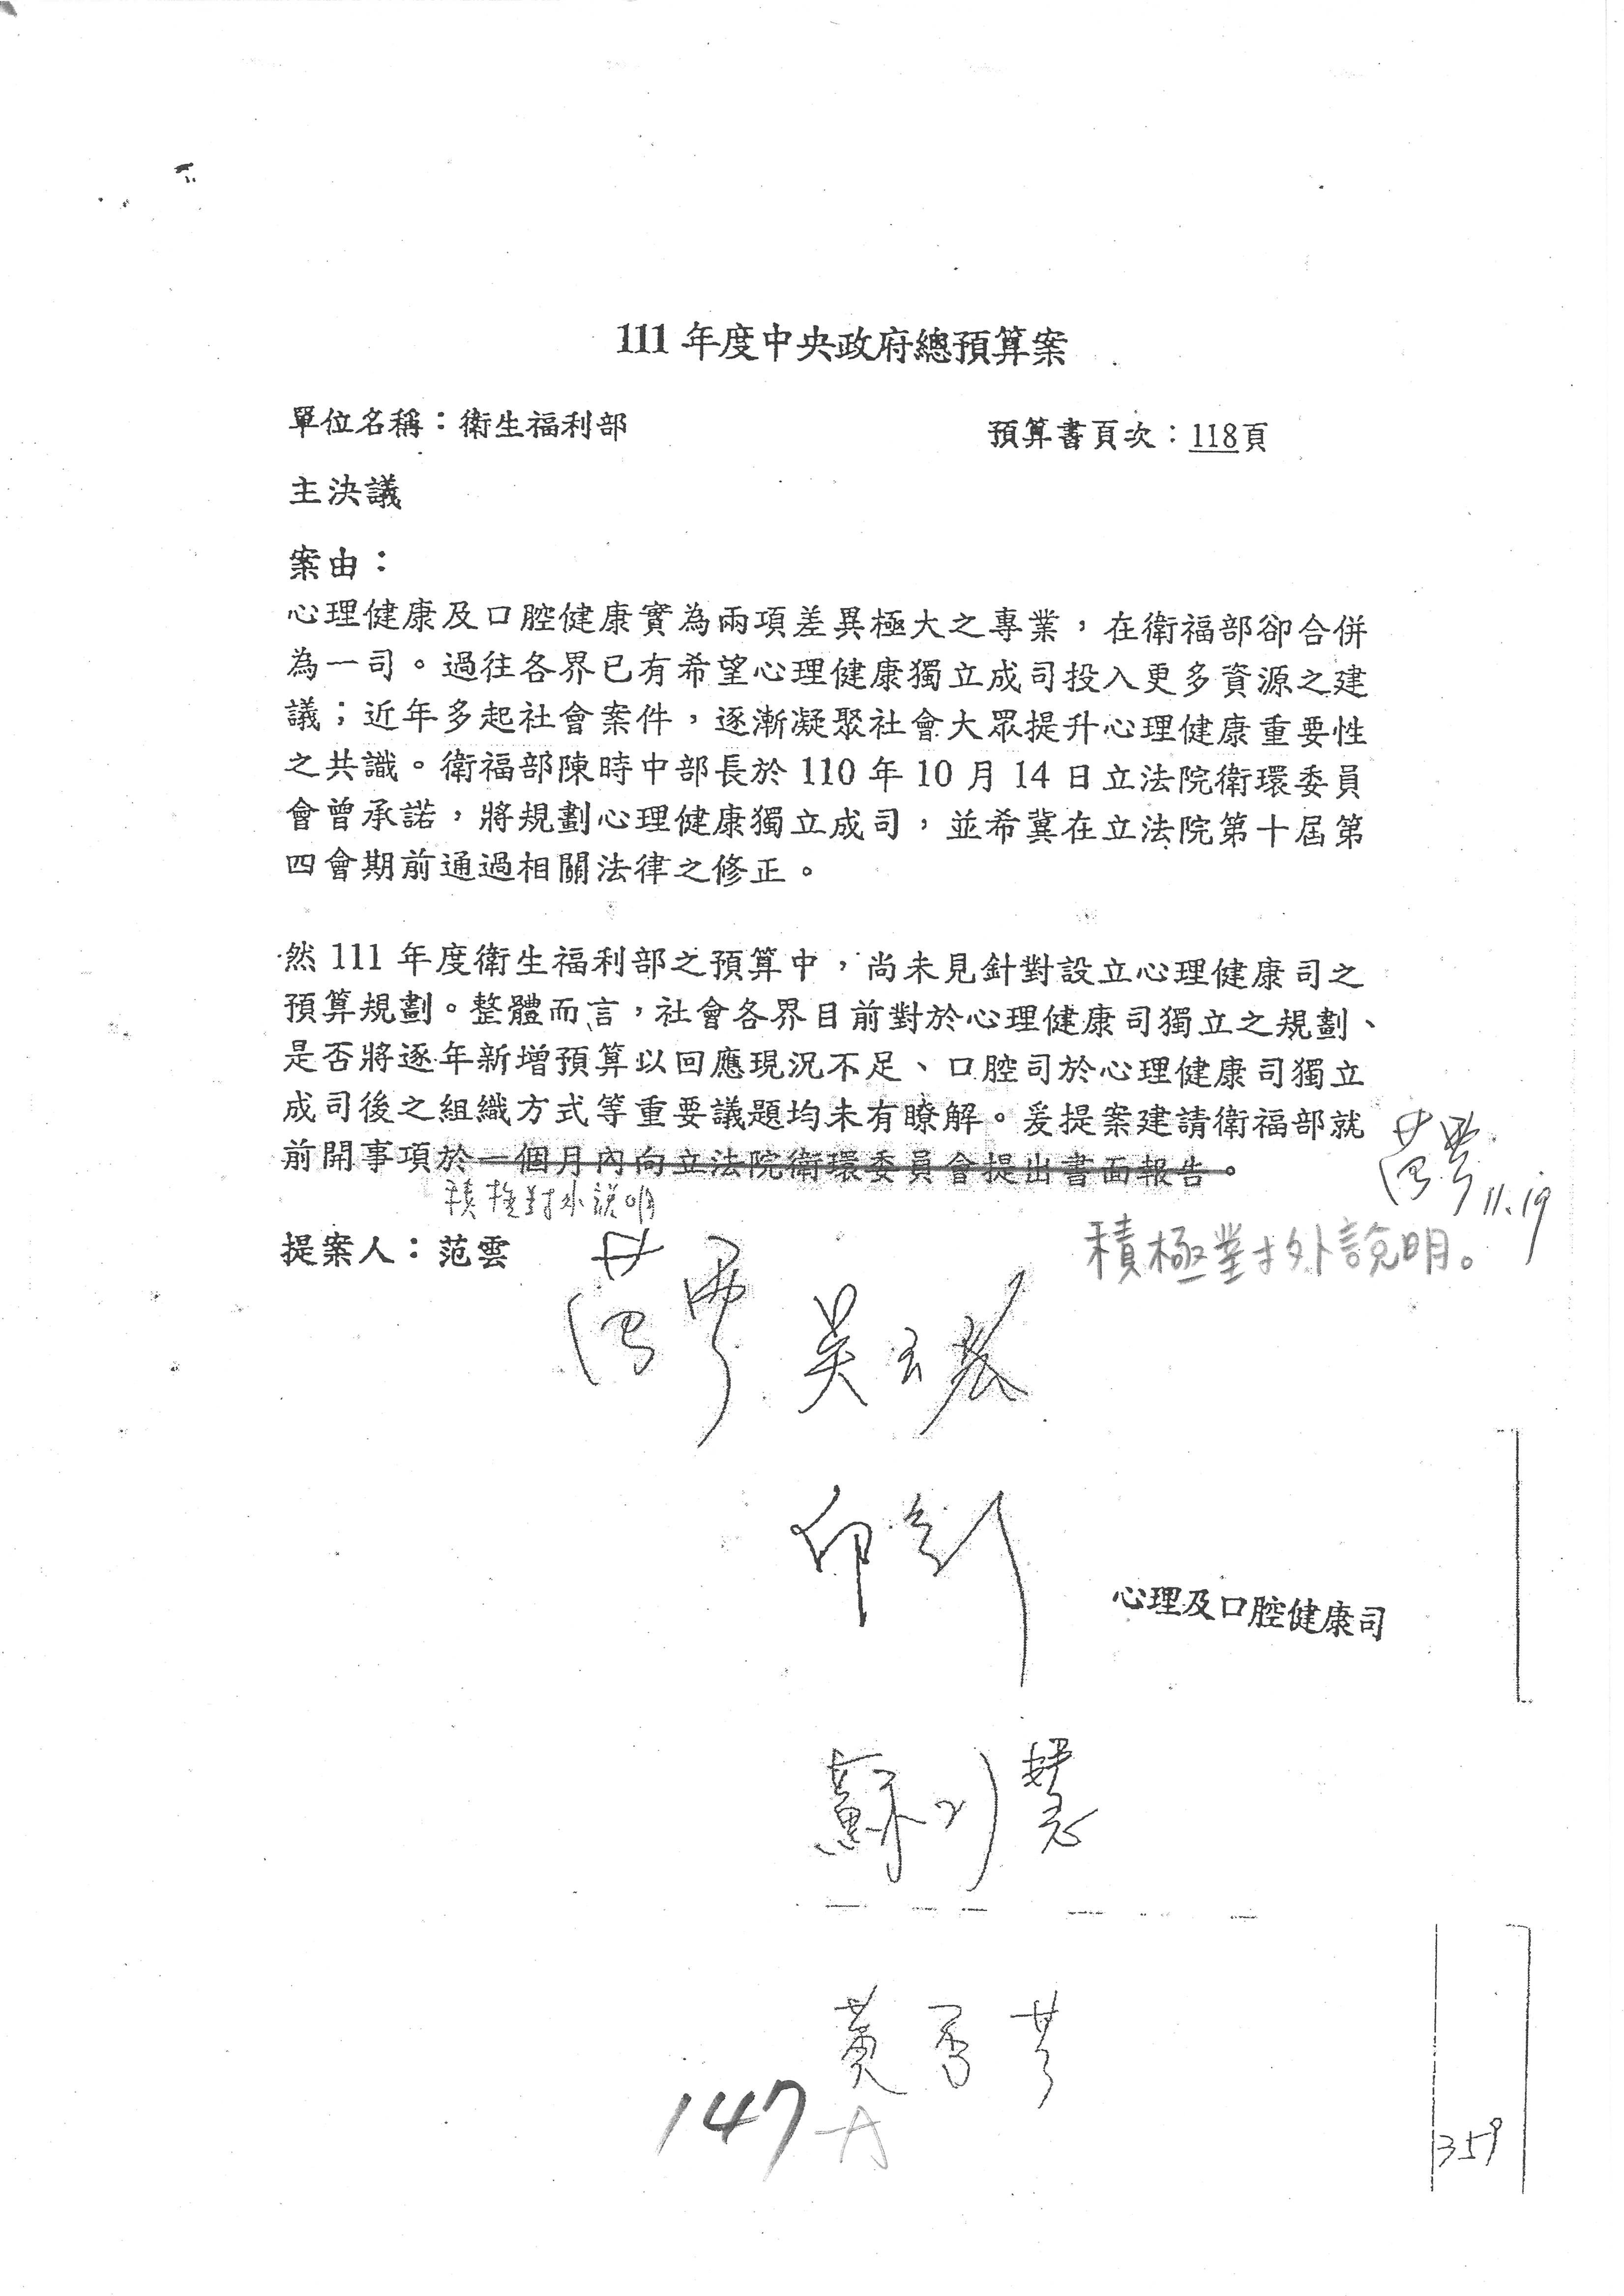 111 年度中央政府總預算案
單位名稱：衛生福利部
預算書頁次：118頁
主決議
案由：
心理健康及口腔健康實為兩項差異極大之專業，在衛福部卻合併
為一司。過往各界已有希望心理健康獨立成司投入更多資源之建
議；近年多起社會案件，逐漸凝聚社會大眾提升心理健康重要性
之共識。衛福部陳時中部長於 110 年 10 月 14 日立法院衛環委員
會曾承諾，將規劃心理健康獨立成司，並希冀在立法院第十屆第
四會期前通過相關法律之修正。
然 111 年度衛生福利部之預算中，尚未見針對設立心理健康司之
預算規劃。整體而言，社會各界目前對於心理健康司獨立之規劃、
是否將逐年新增預算以回應現況不足、口腔司於心理健康司獨立
成司後之組織方式等重要議題均未有瞭解。爰提案建請衛福部就
前開事項於一個月內向立法院衛環委員會提出書面報告。
積極對外說明
范雲 11.19
積極對外說明。
提案人：范雲
范雲
吳玉琴
心理及口腔健康司
蘇巧慧
黃秀芳
147
359